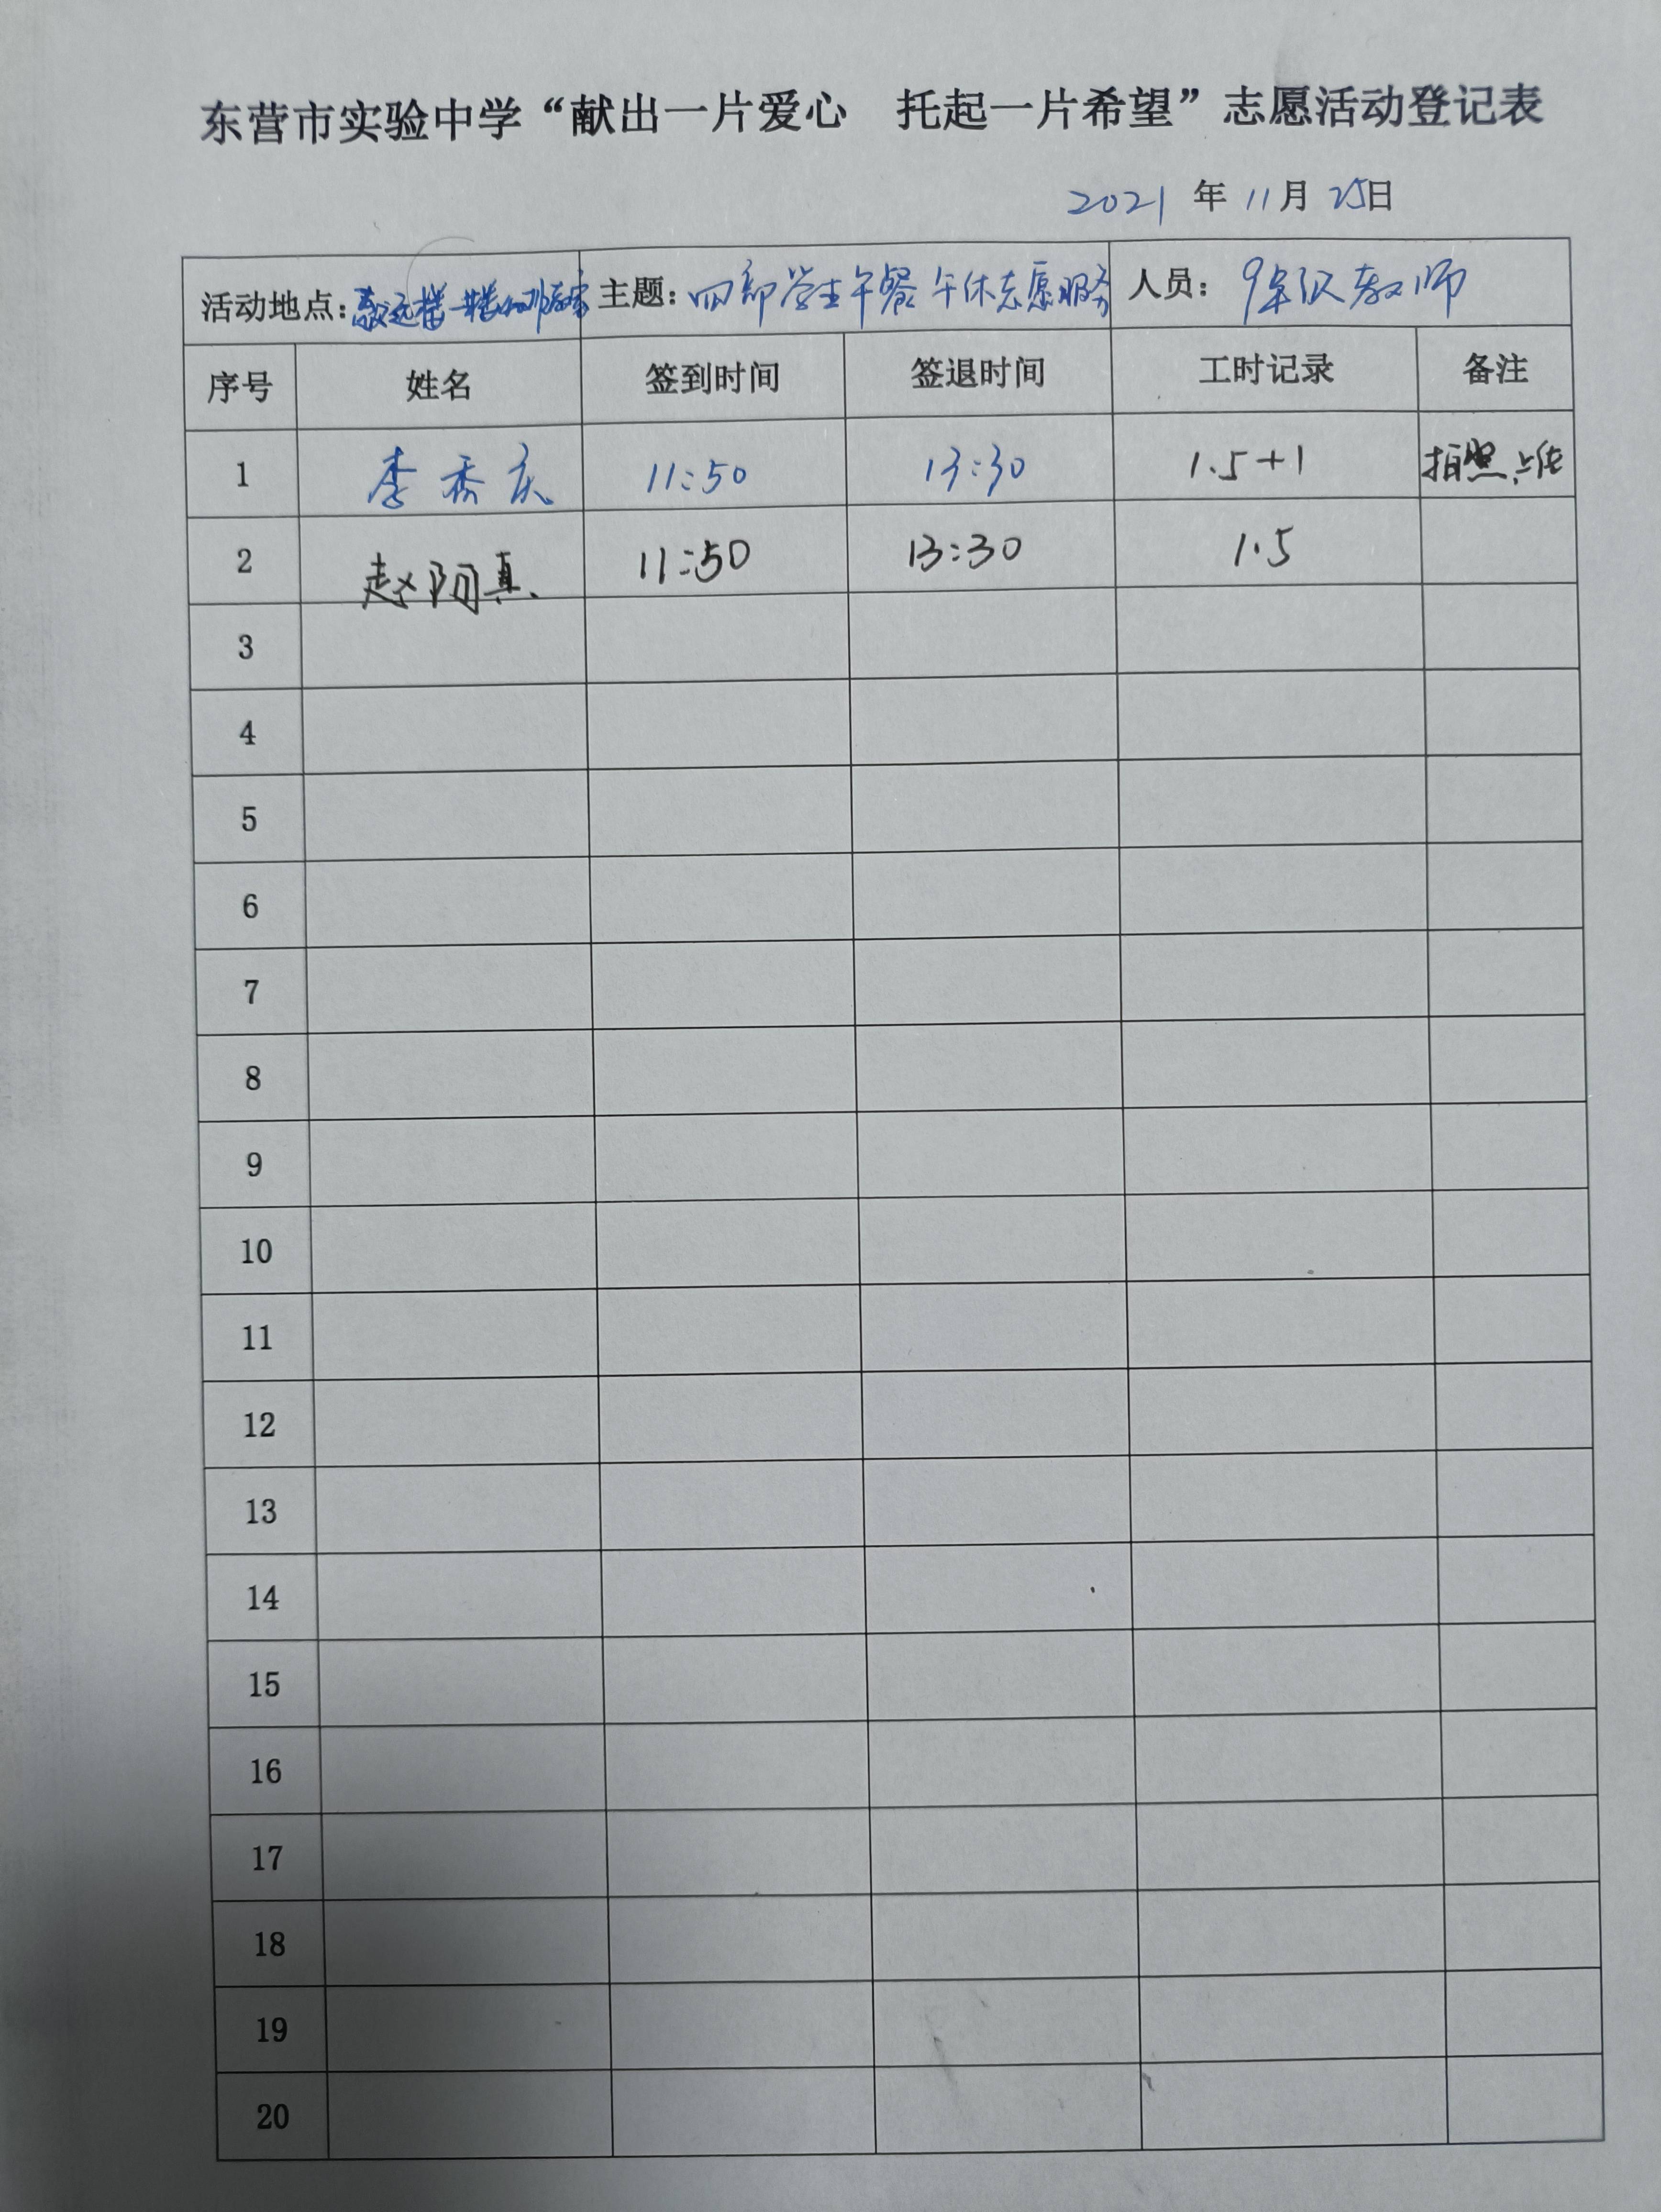 东营市实验中学“献出一片爱心 托起一片希望”志愿活动登记表
2021 年 11月 25日
活动地点: 主题: 四部学生午餐午休志愿服务 人员: 9年级教师
序号 姓名 签到时间 签退时间 工时记录 备注
1 李秀庆 11:50 13:30 1.5+1 拍照上传
2 赵阳真 11:50 13:30 1.5
3
4
5
6
7
8
9
10
11
12
13
14
15
16
17
18
19
20